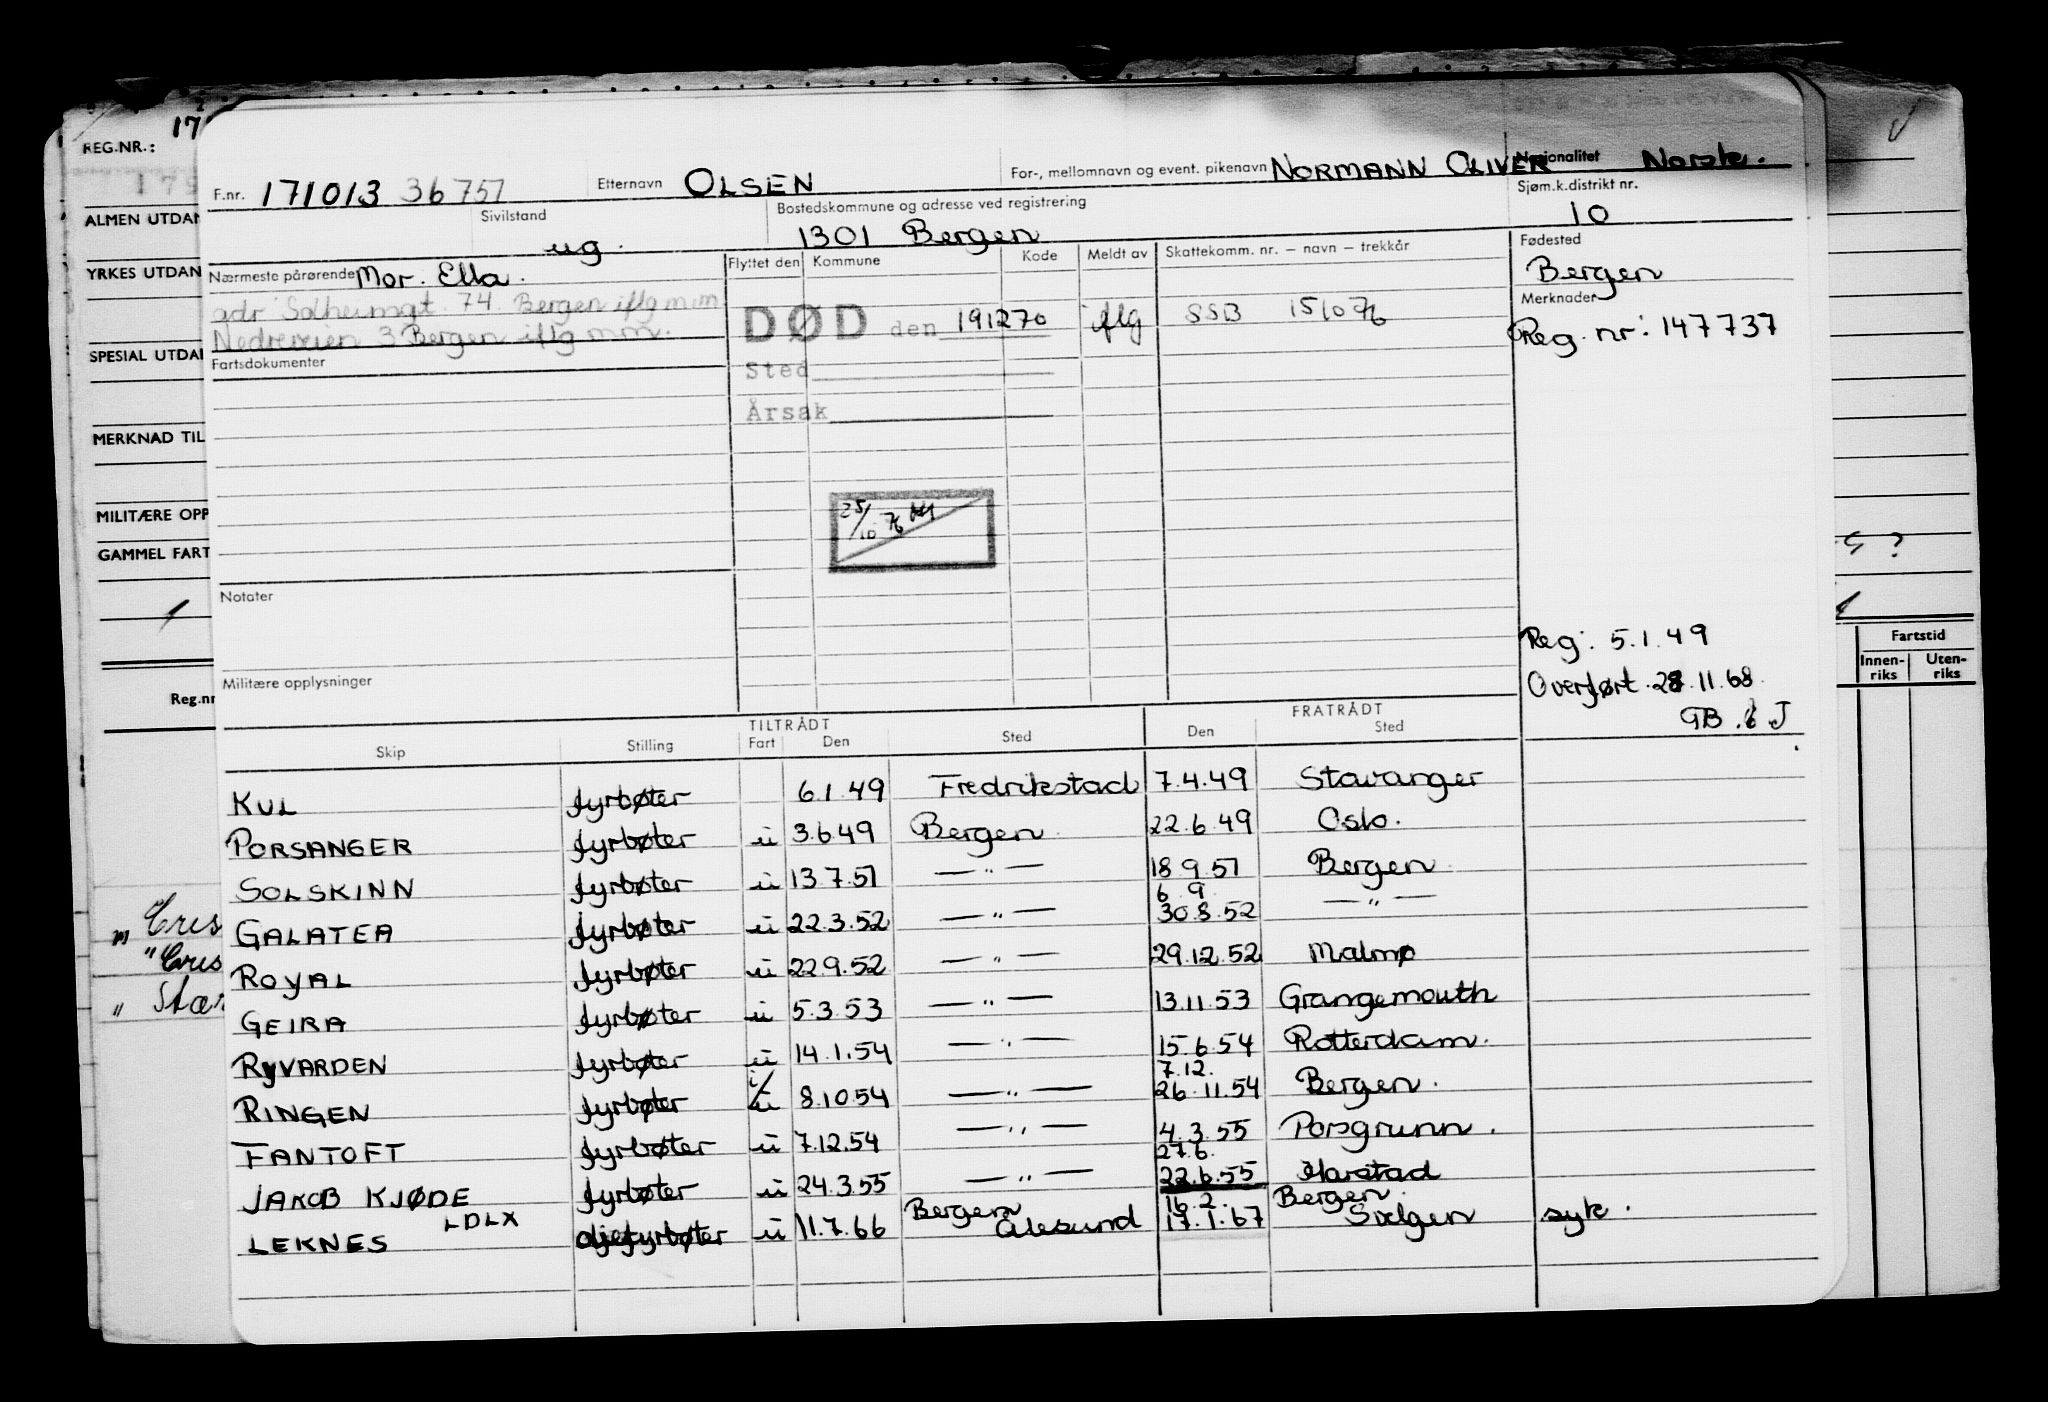 REG.NR.:
ALMEN UTDAN
YRKES UTDAN
SPESIAL UTDAN
MERKNAD TIL
MILITÆRE OPP
GAMMEL FART
Reg.nr
F.nr. 171013 36757 Etternavn OLSEN For-, mellomnavn og event. pikenavn NORMANN OLIVER Nasjonalitet Norsk.
Sivilstand ug. Bostedskommune og adresse ved registrering 1301 Bergen Sjøm.k.distrikt nr. 10
Nærmeste pårørende Mor. Ella. Flyttet den Kommune Kode Meldt av Skattekomm. nr. – navn – trekkår Fødested Bergen
adr Solheimgt. 74. Bergen iflg mm
Nedreveien 3 Bergen iflg mm.
DØD den 191270 iflg SSB 15/10 76
Sted
Årsak
Merknader
Reg. nr: 147737
Fartsdokumenter
25/10 76
Notater
Militære opplysninger
Reg: 5.1.49
Overført. 28.11.68.
Fartstid
Innen-riks Uten-riks
TILTRÅDT FRATRÅDT
Skip Stilling Fart Den Sted Den Sted
KUL fyrbøter 6.1.49 Fredrikstad 7.4.49 Stavanger
PORSANGER fyrbøter u 3.6.49 Bergen 22.6.49 Oslo.
SOLSKINN fyrbøter u 13.7.51 — " — 18.9.51 Bergen
6.9.
GALATEA fyrbøter u 22.3.52 — " — 30.8.52 — " —
ROYAL fyrbøter u 22.9.52 — " — 29.12.52 Malmø
GEIRA fyrbøter u 5.3.53 — " — 13.11.53 Grangemouth
RYVARDEN fyrbøter u 14.1.54 — " — 15.6.54 Rotterdam.
7.12.
RINGEN fyrbøter i/u 8.10.54 — " — 26.11.54 Bergen.
FANTOFT fyrbøter u 7.12.54 — " — 4.3.55 Porsgrunn.
27.6.
JAKOB KJØDE fyrbøter u 24.3.55 — " — 22.6.55 Harstad
Bergen 16.2. Bergen.
LEKNES LDLX oljefyrbøter u 11.7.66 Ålesund 17.1.67 Svelgen syk.